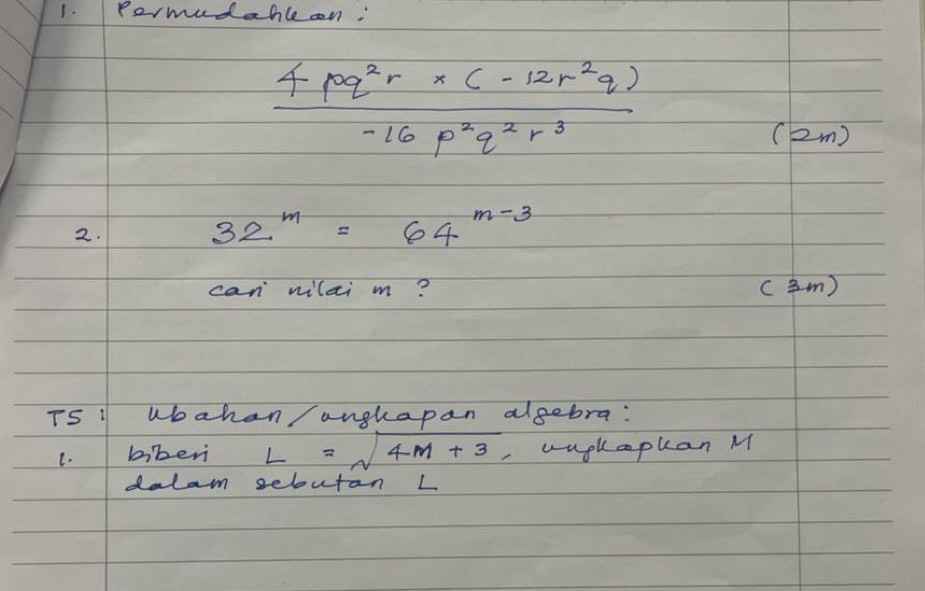 1. Permudahkan :
4 pq²r × ( - 12r²q )
-16 p²q²r³ (2m)
2. 32^m = 64^(m-3)
cari nilai m ? (3m)
T5 : ubahan/ungkapan algebra :
1. biberi L = √(4M + 3), ungkapkan M
dalam sebutan L